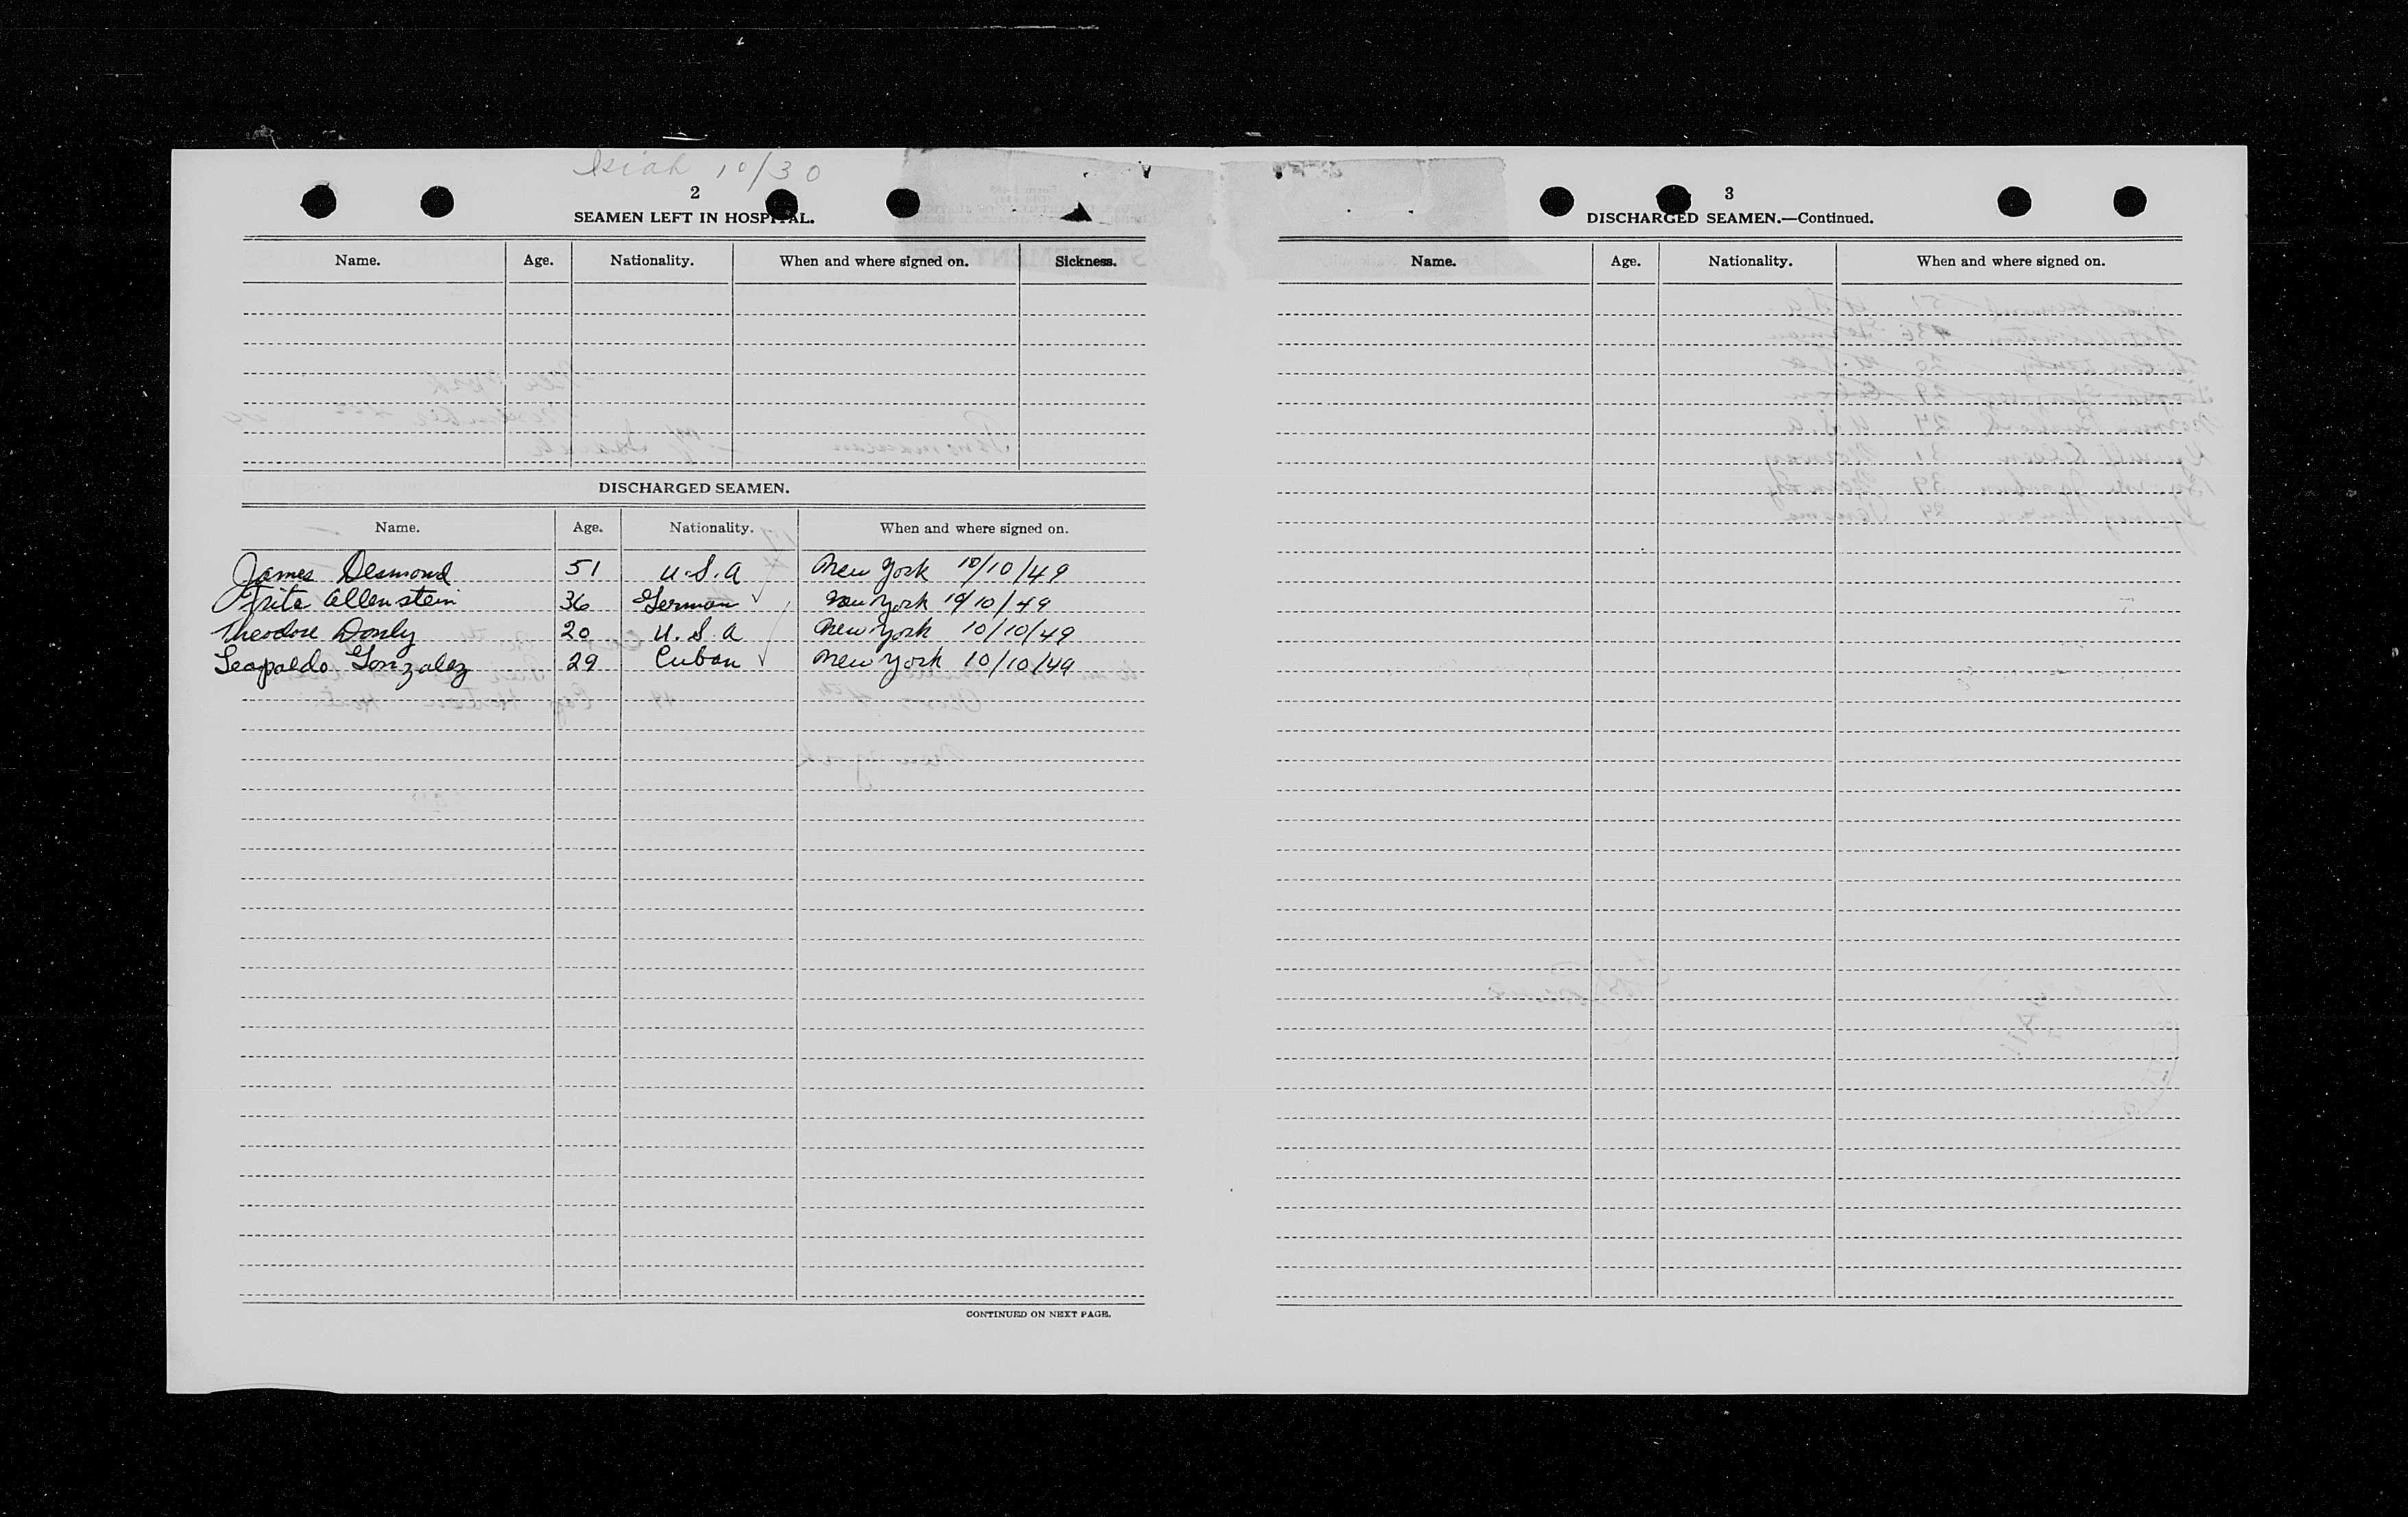 Isiah 10/30
2
SEAMEN LEFT IN HOSPITAL.
Name. Age. Nationality. When and where signed on. Sickness.
DISCHARGED SEAMEN.
Name. Age. Nationality. When and where signed on.
James Desmond 51 U.S.A New York 10/10/49
Fritz Allenstein 36 German ✓ New York 10/10/49
Theodore Donly 20 U.S.A New York 10/10/49
Leopoldo Gonzalez 29 Cuban ✓ New York 10/10/49
CONTINUED ON NEXT PAGE.
3
DISCHARGED SEAMEN.—Continued.
Name. Age. Nationality. When and where signed on.